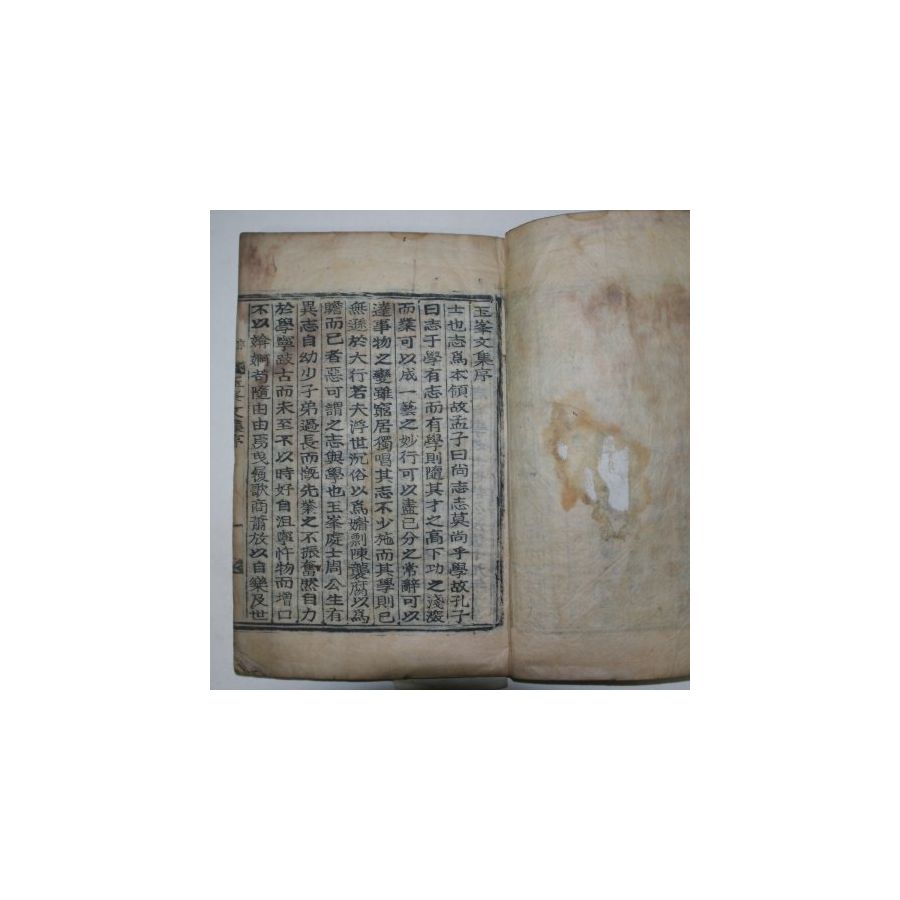 玉峯文集序
士也志爲本領故孟子曰尚志志莫尚乎學故孔子
曰志于學有志而有學則隨其才之高下功之淺深
而業可以成一藝之妙行可以盡己分之常辭可以
達事物之變雖窮居獨唱其志不少施而其學則已
無遜於大行若夫浮世沉俗以爲媚剽陳襲腐以爲
贍而已者惡可謂之志與學也玉峯處士周公生有
異志自幼少子弟過長而慨先業之不振奮然自力
於學寧鼓古而未至不以時好自沮寧忤物而增口
不以媕婀苟隨由由焉曳履歌商蕭放以自樂及世